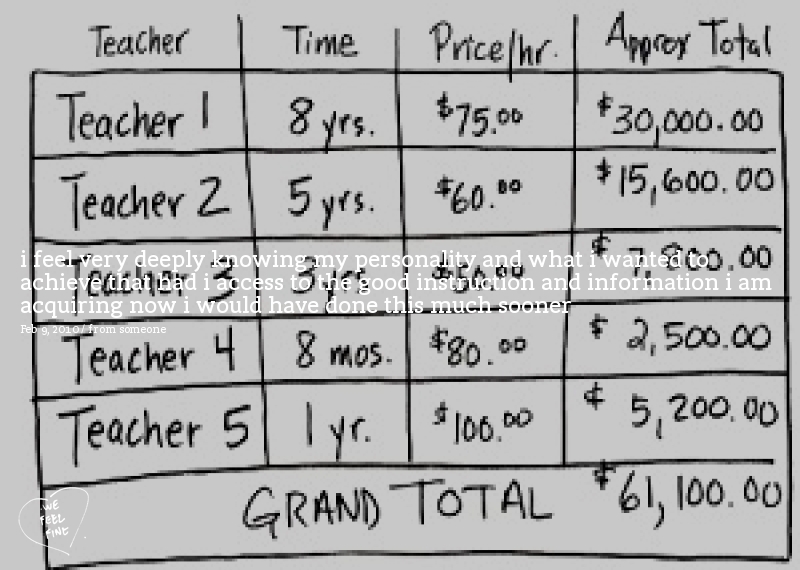 Teacher Time Price/hr. Approx Total
Teacher 1 8 yrs. $75.00 $30,000.00
Teacher 2 5 yrs. $60.00 $15,600.00
Teacher 3 3 yrs. $50.00 $ 7,800.00
i feel very deeply knowing my personality and what i wanted to
achieve that had i access to the good instruction and information i am
acquiring now i would have done this much sooner
Feb 9, 2010 / from someone
Teacher 4 8 mos. $80.00 $ 2,500.00
Teacher 5 1 yr. $100.00 $ 5,200.00
GRAND TOTAL $61,100.00
WE
FEEL
FINE